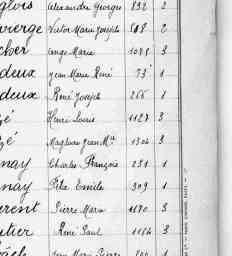 Alexandre Georges 892 2
vierge Victor Marie Joseph 508 2
cher Ange Marie 1085 3
deux Jean Marie René 73 1
deux René Joseph 266 1
zé Henri Louis 1127 3
zé Jean Mie 1304 3
nay Charles François 251 1
nay Félix Emile 309 1
erent Pierre Marie 1670 3
utier René Paul 1164 3
Jean Marie Pierre